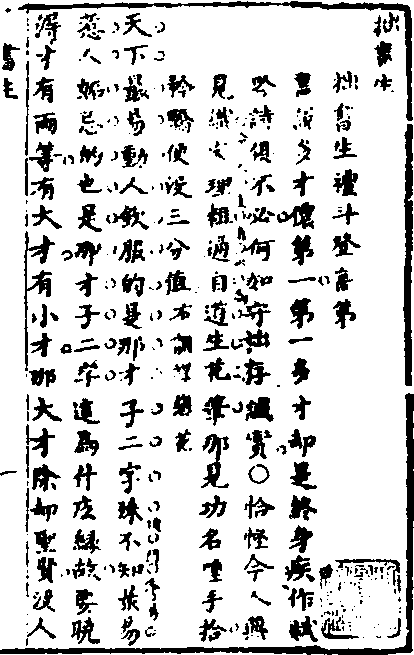 拙書生
拙書生禮斗登高第
多才儂第一第一多才却是終身疾作賦
吟詩俱不必何如守拙存誠實○恰怪今人
見識文理粗通自道生花筆那見功名唾手拾
矜驕便沒三分值右調蝶戀花
天下最易動人欽服的是那才子二字殊不知最易
惹人妬忌的也是那才子二字這為什麼緣故要曉
得才有兩等有大才有小才那大才除却聖賢沒人
書生
一